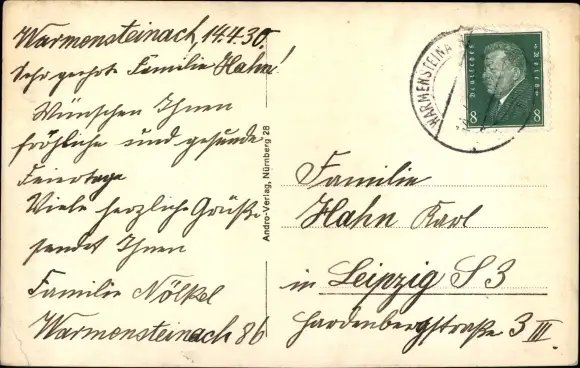 Warmensteinach, 14.4.30.
Sehr geehrte Familie Hahn!
Wünschen Ihnen
fröhliche und gesunde
Feiertage
Viele herzliche Grüße
sendet Ihnen
Familie Nölkel
Warmensteinach 86
Andro-Verlag, Nürnberg 28
WARMENSTEINA
Deutsches Reich
8 8
Familie
Hahn Karl
in Leipzig S 3
Hardenbergstraße 3 III.